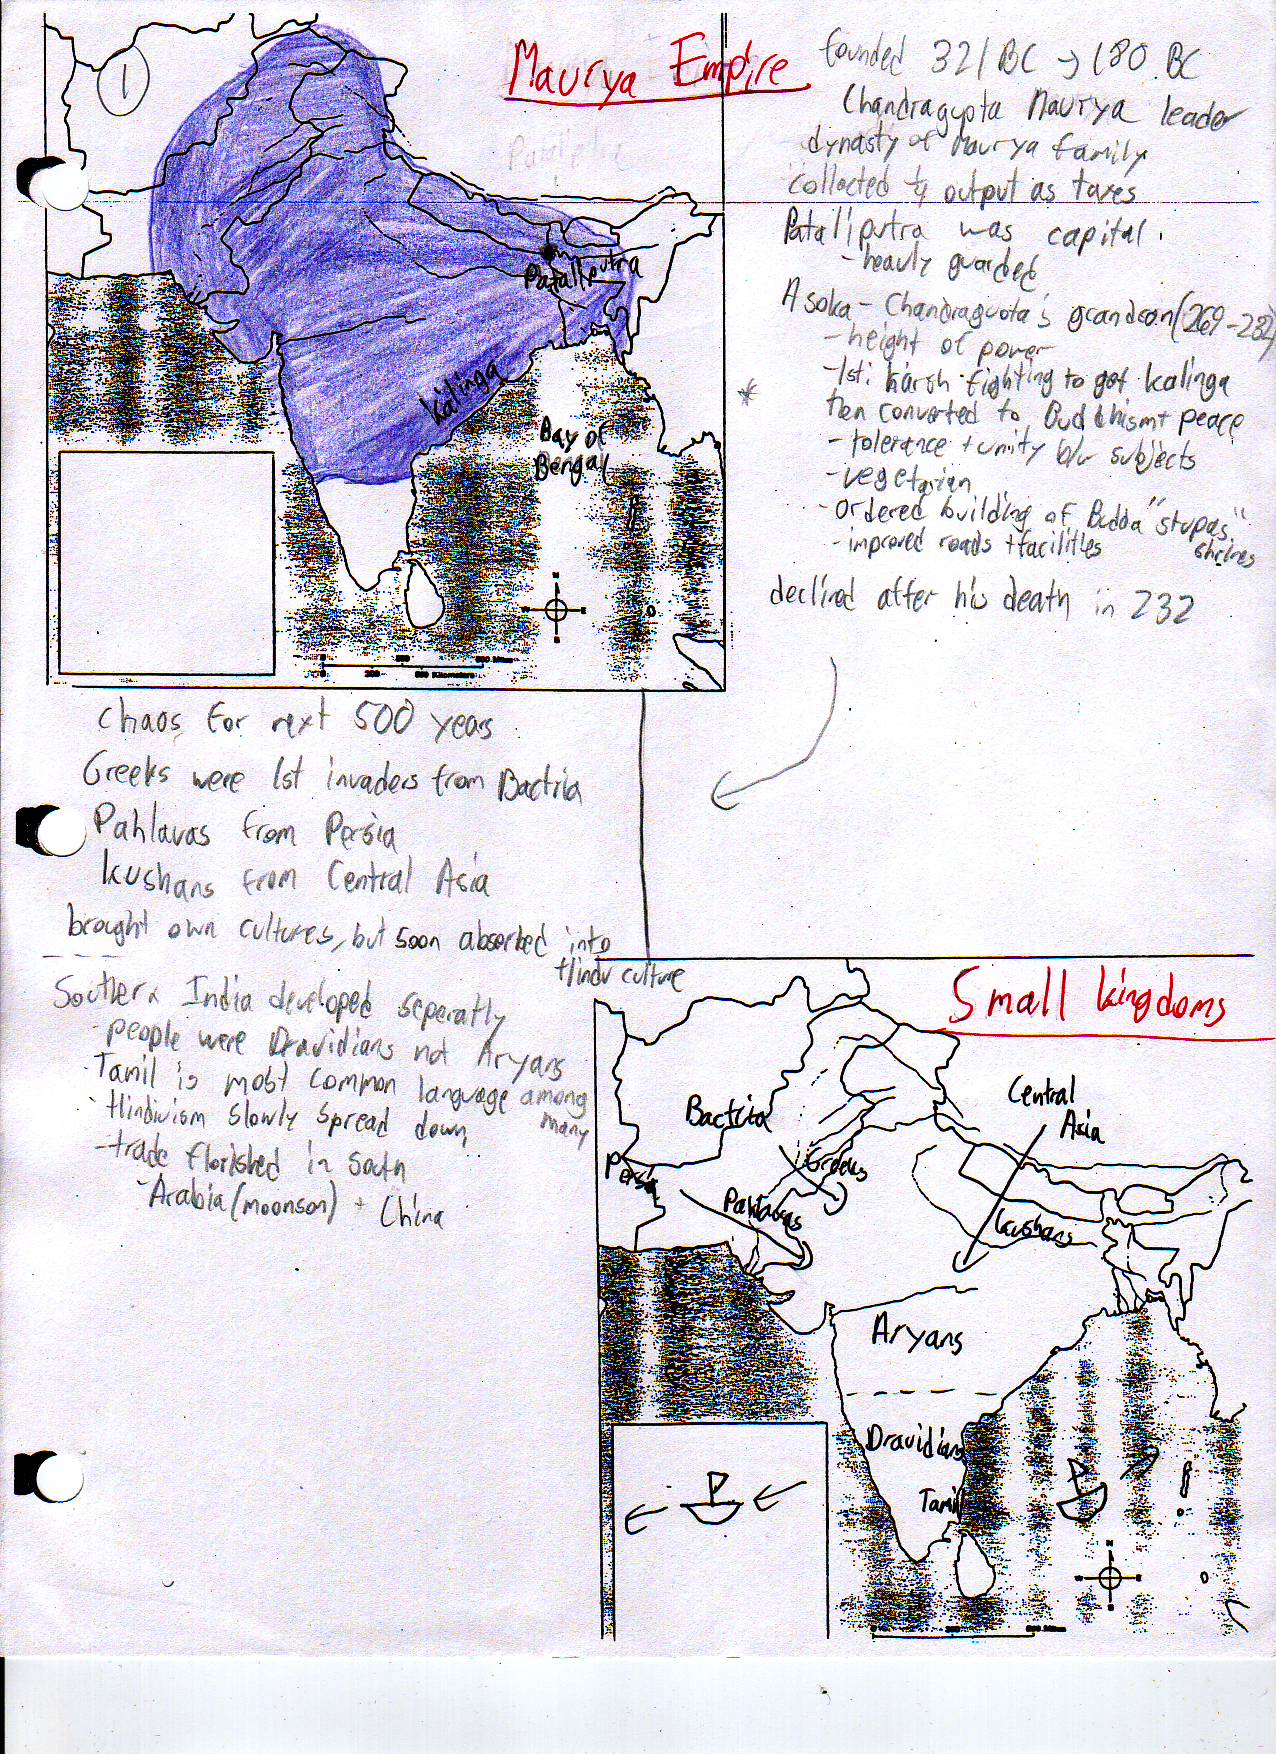 1
Maurya Empire
founded 321 BC → 180 BC
Chandragupta Maurya leader
dynasty of Maurya family
collected 1/4 output as taxes
Pataliputra was capital.
- heavly guarded
Asoka - Chandragupta's grandson (269-232)
- height of power
- 1st: harsh fighting to get Kalinga
then converted to Buddhism + peace
- tolerance + unity b/w subjects
- vegetarian
- ordered building of Budda "stupas"
shrines
- improved roads + facilities
declined after his death in 232
Pataliputra
Kalinga
Bay of
Bengal
N
chaos for next 500 years
Greeks were 1st invaders from Bactria
Pahlavas from Persia
Kushans from Central Asia
brought own cultures, but soon absorbed into
Hindu culture
Southern India developed seperatly
- people were Dravidians not Aryans
- Tamil is most common language among
many
- Hinduism slowly spread down
- trade florished in south
- Arabia (moonson) + China
Small kingdoms
Central
Asia
Bactria
Persia
Greeks
Pahlavas
Kushans
Aryans
Dravidians
Tamil
N